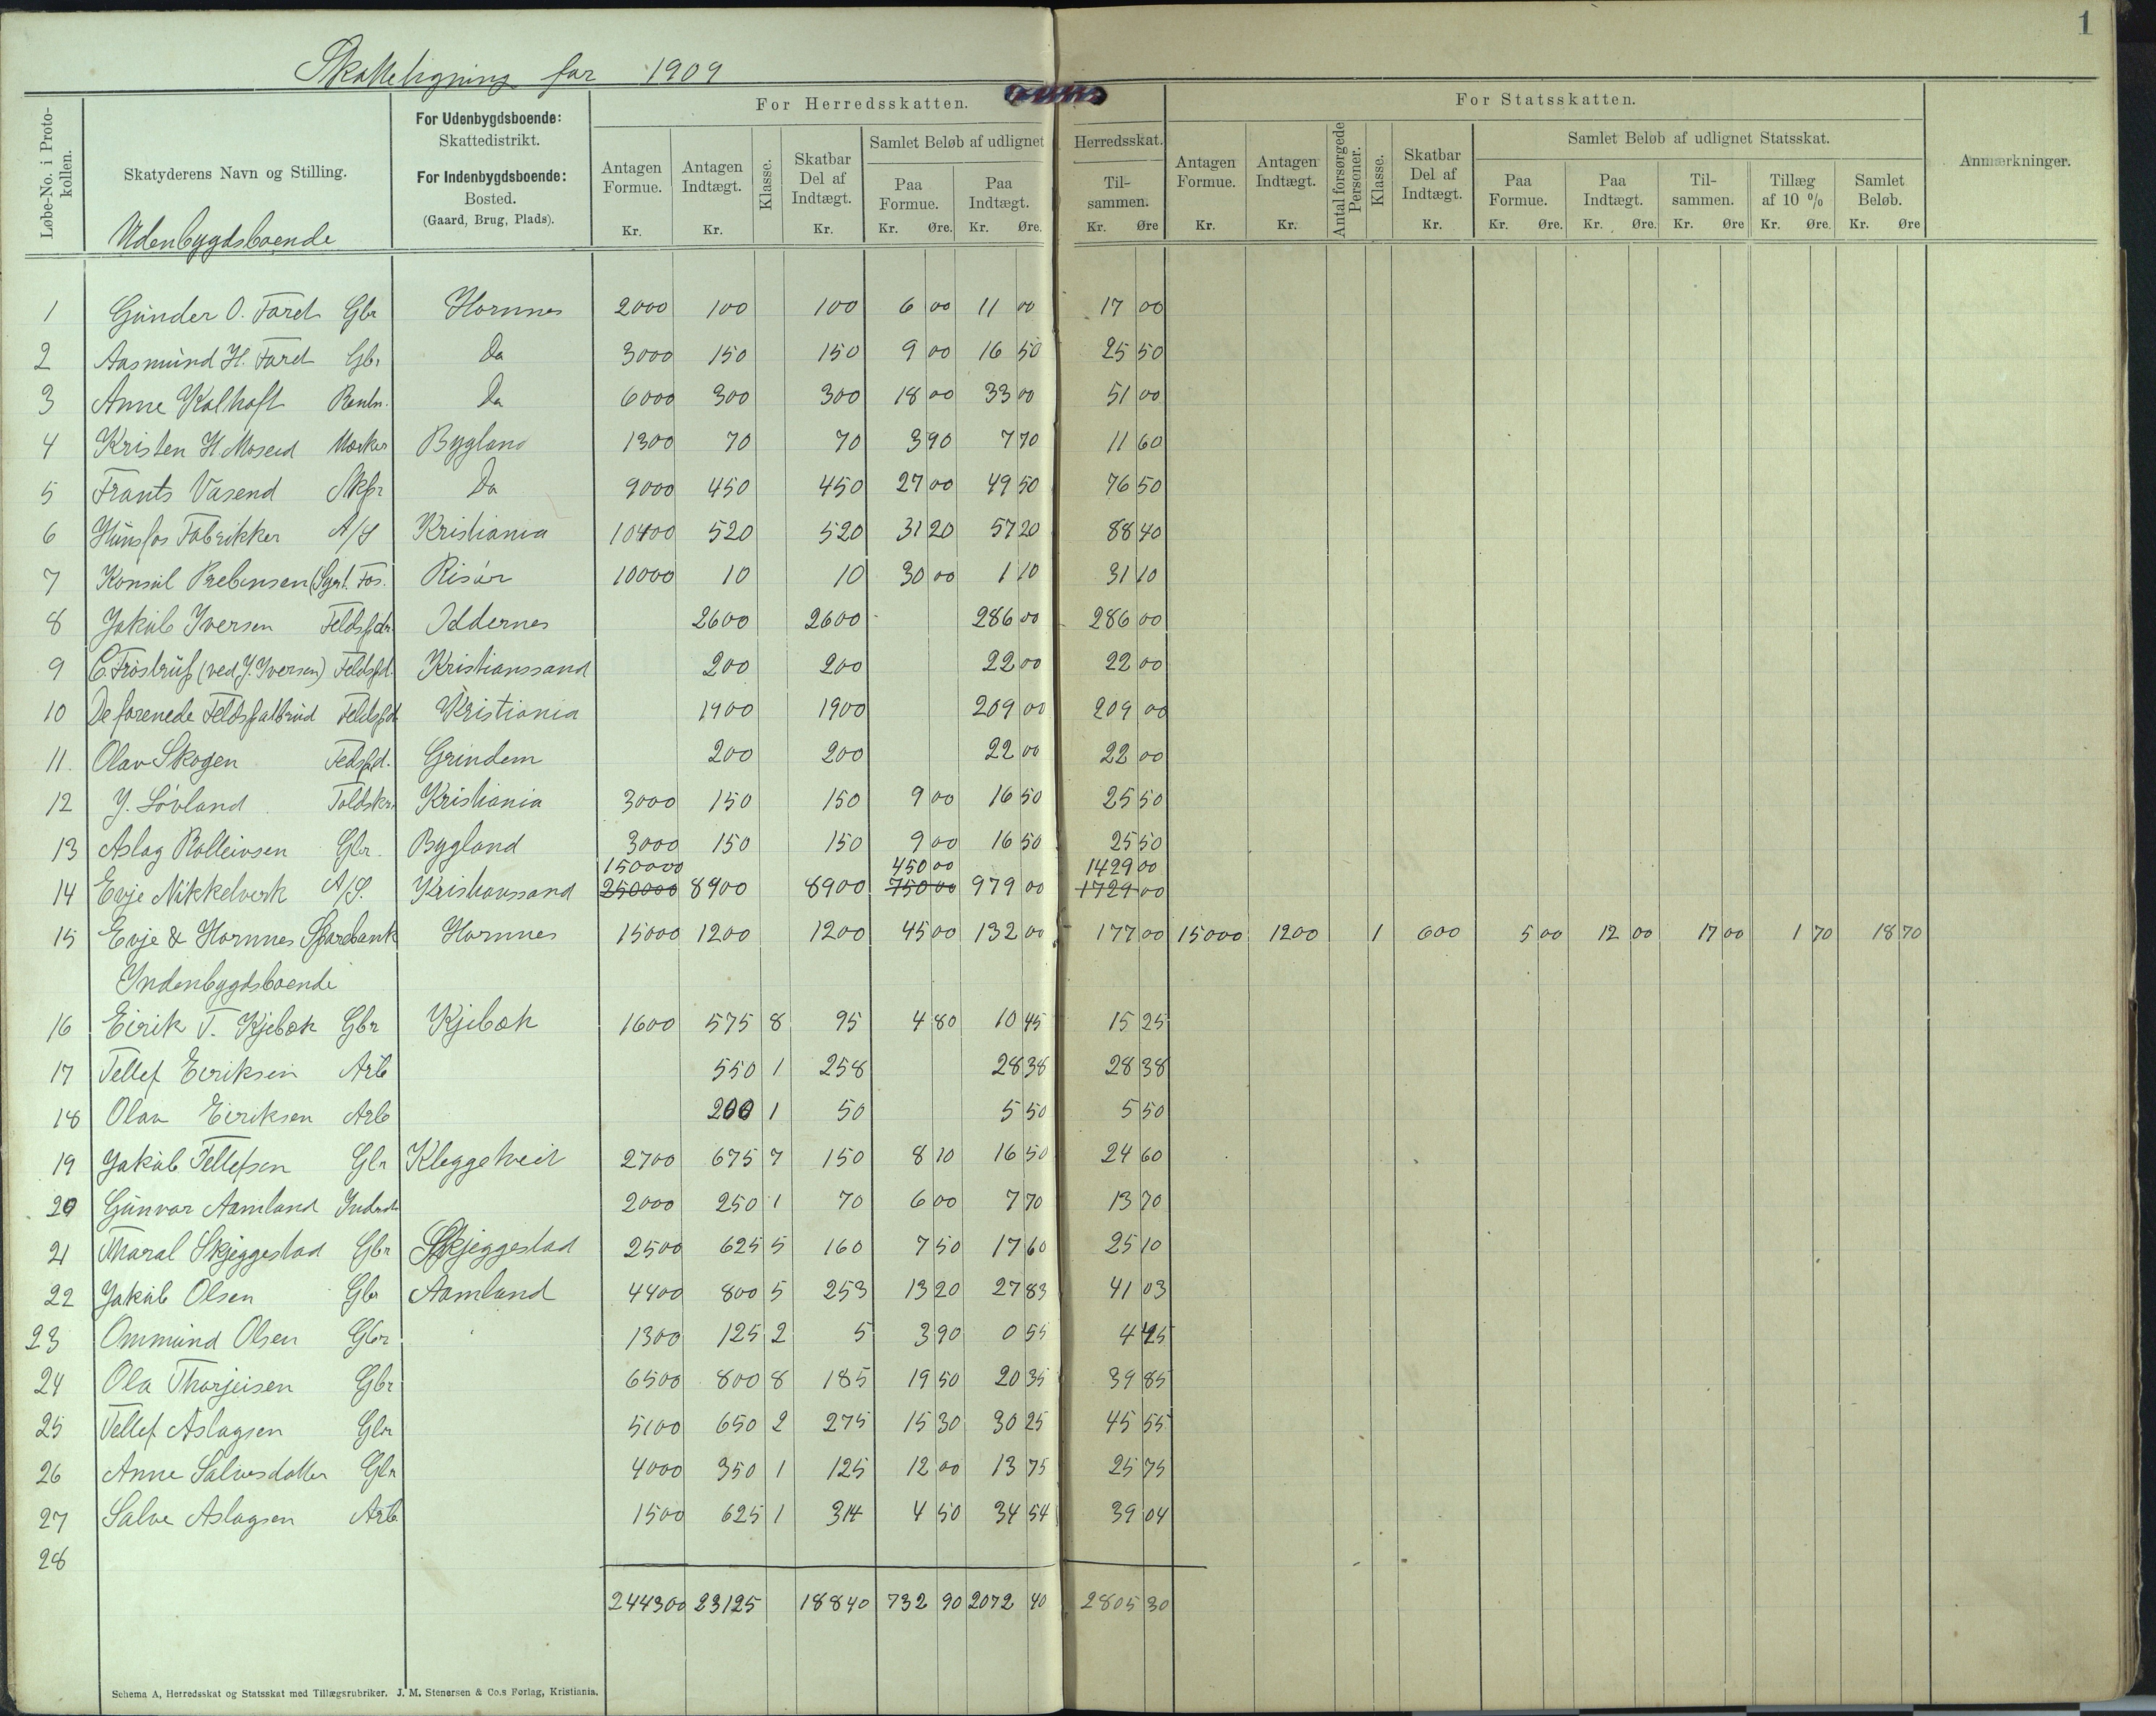 1
Skatteligning for 1909
Løbe-No. i Protokollen.
Skatyderens Navn og Stilling.
Udenbygdsboende
For Udenbygdsboende:
Skattedistrikt.
For Indenbygdsboende:
Bosted.
(Gaard, Brug, Plads).
For Herredsskatten.
Antagen Formue. Kr.
Antagen Indtægt. Kr.
Klasse.
Skatbar Del af Indtægt. Kr.
Samlet Beløb af udlignet Herredsskat.
Paa Formue. Kr. Øre.
Paa Indtægt. Kr. Øre.
Tilsammen. Kr. Øre
For Statsskatten.
Antagen Formue. Kr.
Antagen Indtægt. Kr.
Antal forsørgede Personer.
Klasse.
Skatbar Del af Indtægt. Kr.
Samlet Beløb af udlignet Statsskat.
Paa Formue. Kr. Øre.
Paa Indtægt. Kr. Øre.
Tilsammen. Kr. Øre
Tillæg af 10 % Kr. Øre.
Samlet Beløb. Kr. Øre
Anmærkninger.
1 Gunder O. Faret Gbr Hornnes 2000 100 100 6 00 11 00 17 00
2 Aasmund H. Faret Gbr Do 3000 150 150 9 00 16 50 25 50
3 Anne Kalhoft Rentn. Do 6000 300 300 18 00 33 00 51 00
4 Kristen H. Moseid Bygland 1300 70 70 3 90 7 70 11 60
5 Frants Vasend Skpr Do 9000 450 450 27 00 49 50 76 50
6 Hunsfos Fabrikker A/S Kristiania 10400 520 520 31 20 57 20 88 40
7 Konsul Prebensen Risør 10000 10 10 30 00 1 10 31 10
8 Jakob Iversen Feldspdr. Oddernes 2600 2600 286 00 286 00
9 C. Frostrup (ved J. Iversen) Feldspd. Kristianssand 200 200 22 00 22 00
10 De forenede Feldspatbrud Feldspd Kristiania 1900 1900 209 00 209 00
11. Olav Skogen Fedspd. Grindem 200 200 22 00 22 00
12 J. Løvland Toldskr. Kristiania 3000 150 150 9 00 16 50 25 50
13 Aslag Rolleivsen Gbr. Bygland 3000 150 150 9 00 16 50 25 50
150000 450 00 1429 00
14 Evje Nikkelverk A/S. Kristianssand 250000 8900 8900 750 00 979 00 1729 00
15 Evje & Hornnes Sparebank Hornnes 15000 1200 1200 45 00 132 00 177 00 15000 1200 1 600 5 00 12 00 17 00 1 70 18 70
Indenbygdsboende
16 Eirik T. Kjebæk Gbr Kjebæk 1600 575 8 95 4 80 10 45 15 25
17 Tellef Eiriksen Arb 550 1 258 28 38 28 38
18 Olav Eiriksen Arb 200 1 50 5 50 5 50
19 Jakob Tellefsen Gbr Kleggetveit 2700 675 7 150 8 10 16 50 24 60
20 Gunvor Aamland Inderst 2000 250 1 70 6 00 7 70 13 70
21 Tharal Skjeggestad Gbr Skjeggestad 2500 625 5 160 7 50 17 60 25 10
22 Jakob Olsen Gbr Aamland 4400 800 5 253 13 20 27 83 41 03
23 Ommund Olsen Gbr 1300 125 2 5 3 90 0 55 4 45
24 Ola Thorjeisen Gbr 6500 800 8 185 19 50 20 35 39 85
25 Tellef Aslagsen Gbr 5100 650 2 275 15 30 30 25 45 55
26 Anne Salvesdatter Gbr 4000 350 1 125 12 00 13 75 25 75
27 Salve Aslagsen Arb 1500 625 1 314 4 50 34 54 39 04
28
244300 23125 18840 732 90 2072 40 2805 30
Schema A, Herredsskat og Statsskat med Tillægsrubriker. J. M. Stenersen & Co.s Forlag, Kristiania.